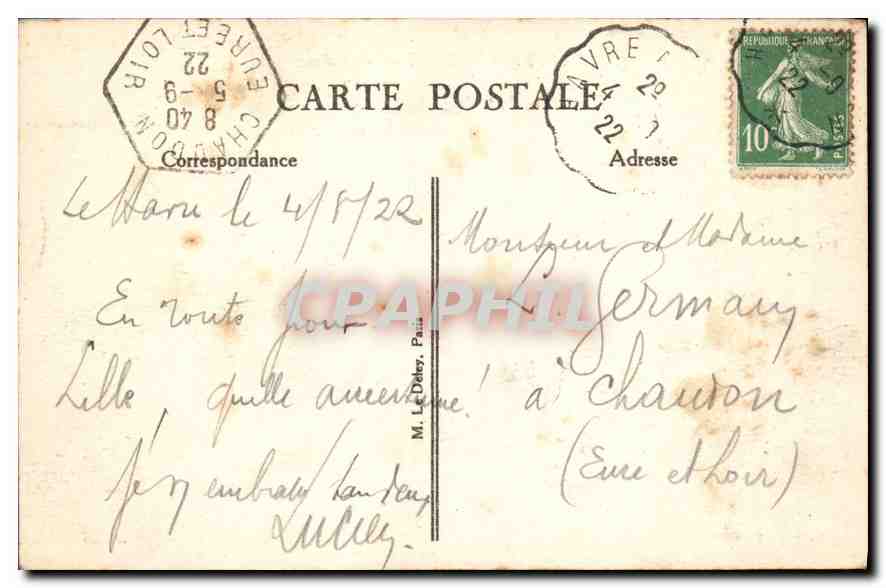 CHAUDON
8 40
5 -9
22
EURE ET LOIR
CARTE POSTALE
AVRE
4 29
22
REPUBLIQUE FRANÇAISE
10
POSTES
22 -9
Correspondance
Adresse
Le Havre le 4/8/22
En route pour
Lille, quelle
Lucien.
M. Le Deley, Paris
Monsieur et Madame
L. Germain
à Chaudon
(Eure et Loir)
CPAPHIL